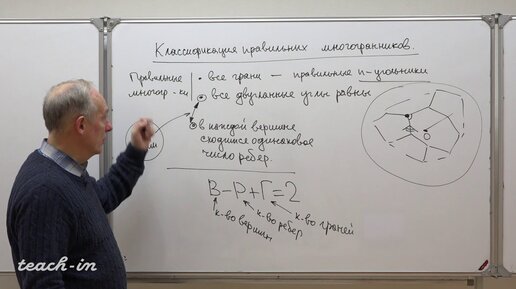 Классификация правильных многогранников.
Правильные
многогр-ки
• все грани — правильные n-угольники
• все двугранные углы равны
• в каждой вершине
сходится одинаковое
число ребер.
В-Р+Г=2
к-во вершин
к-во ребер
к-во граней
teach-in